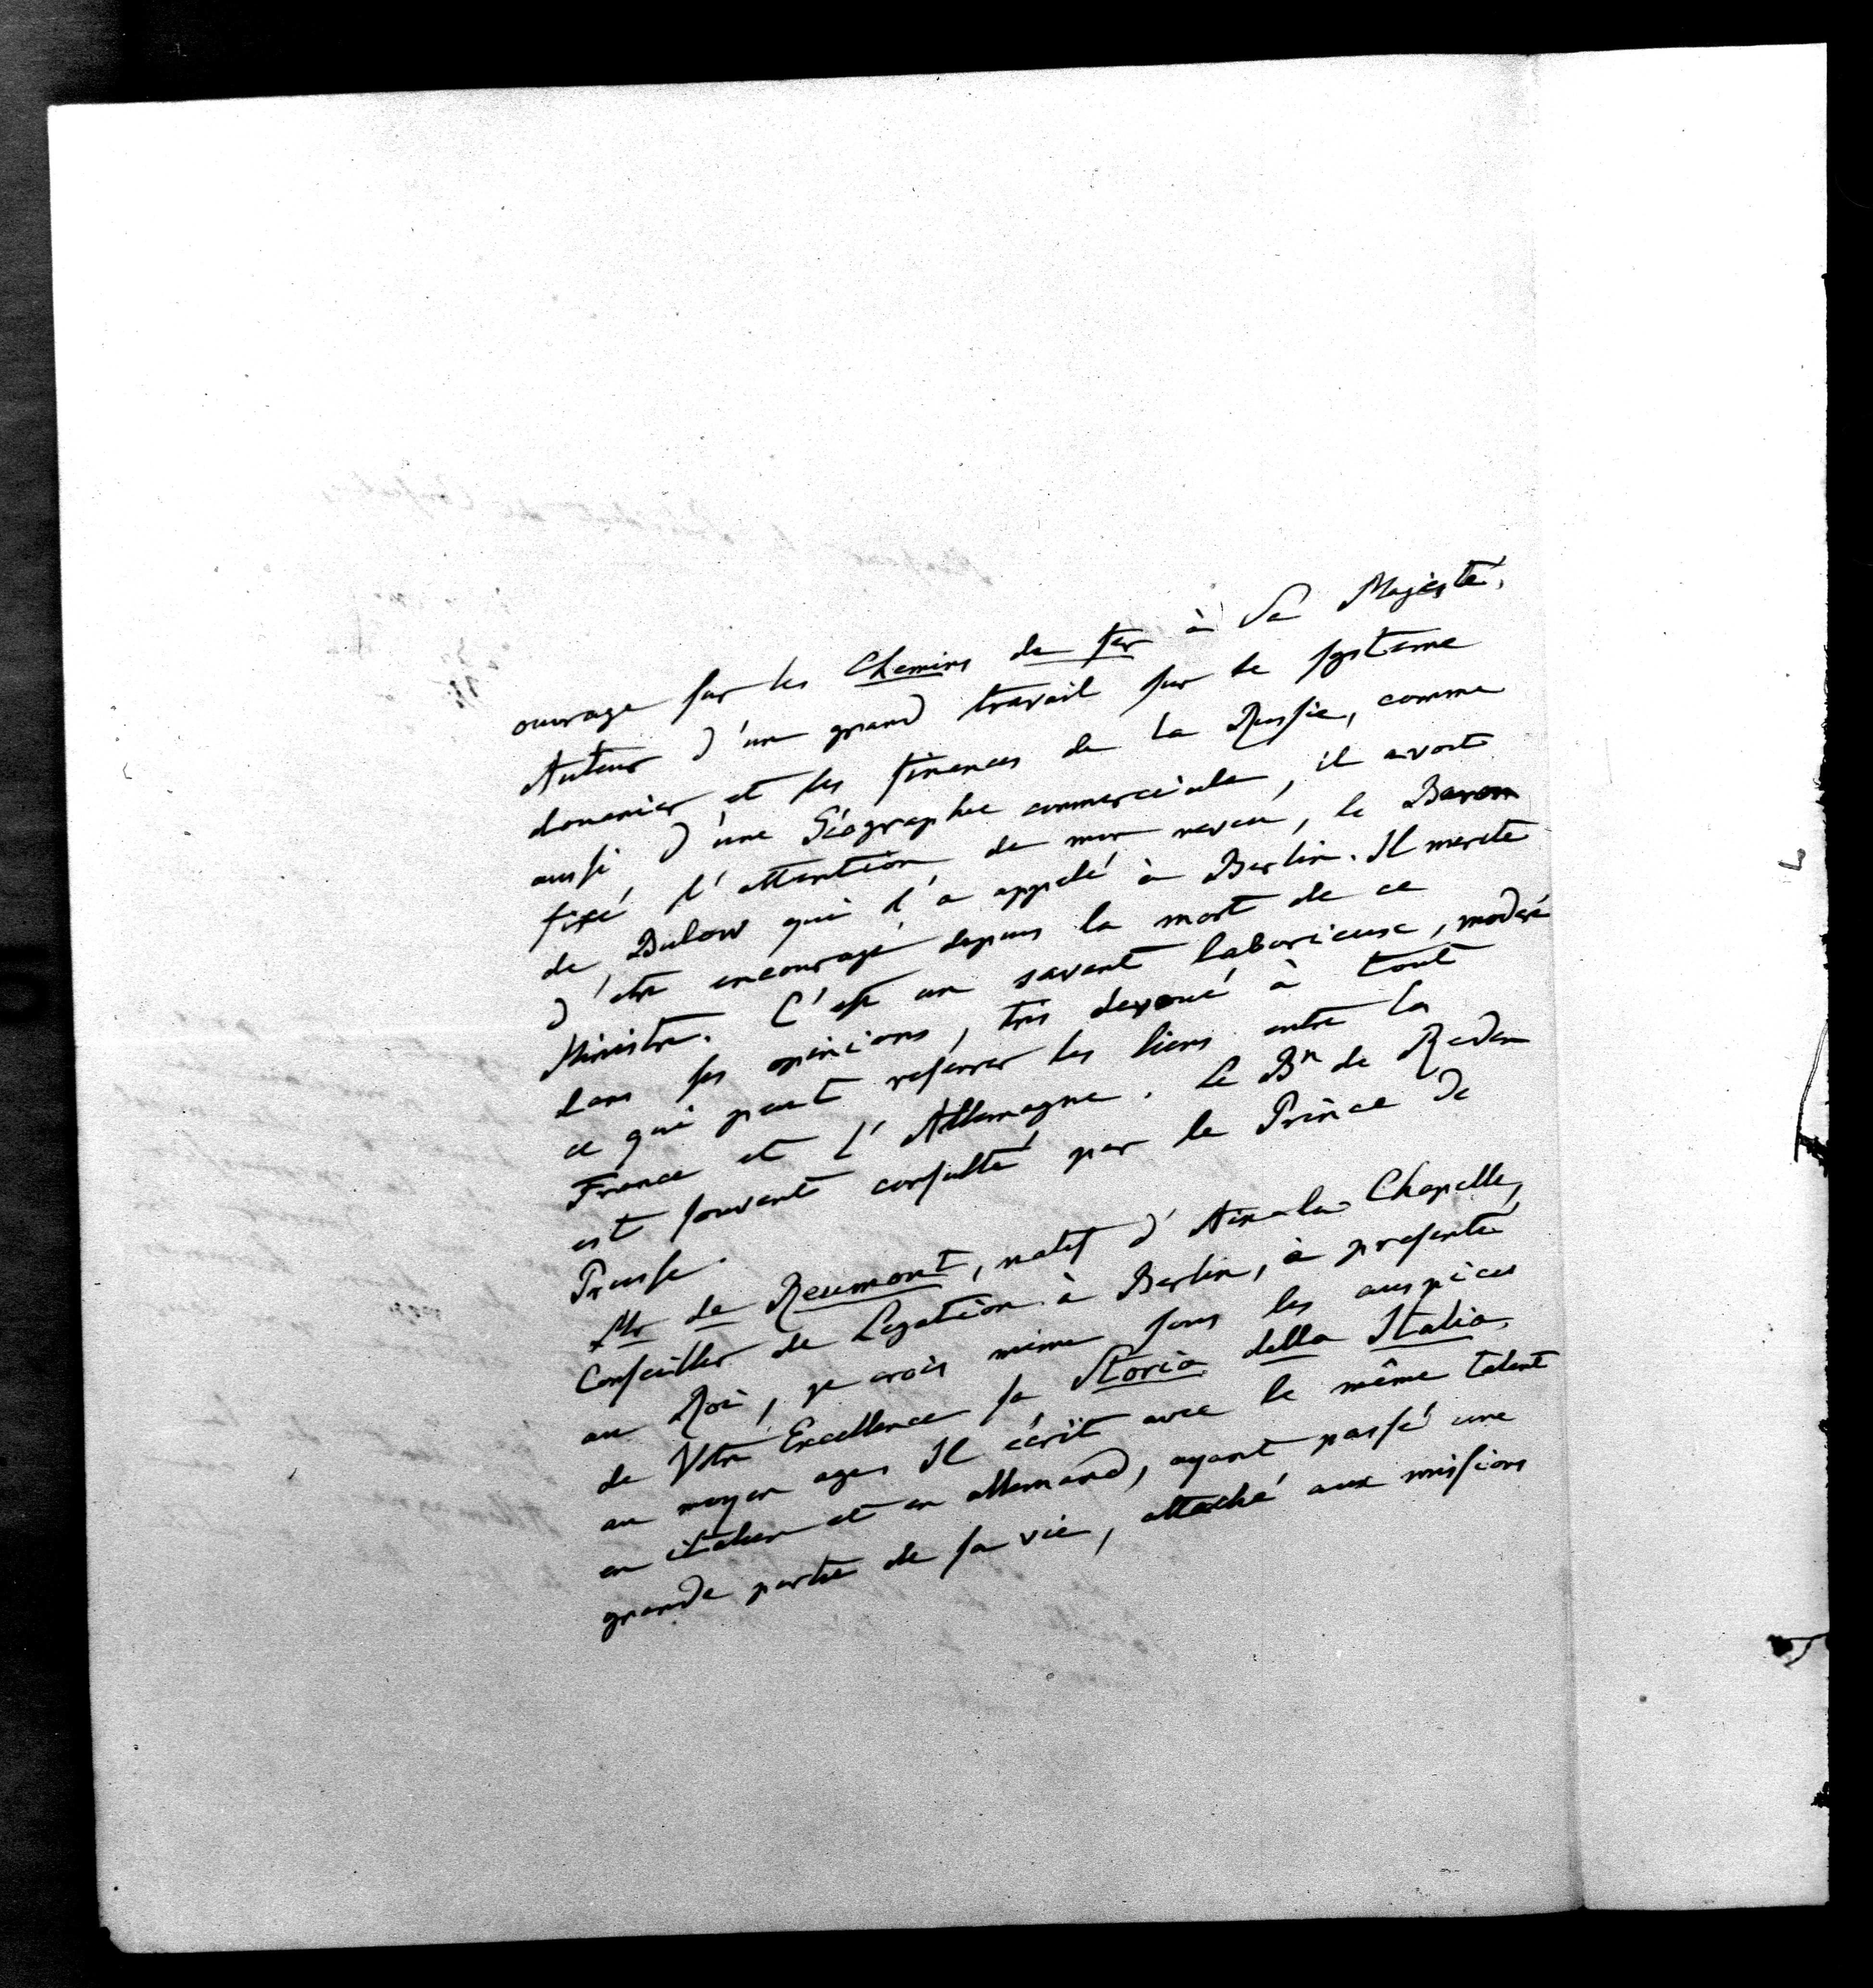 ouvrage sur les Chemins de fer à Sa Majesté.
Auteur d'un grand travail sur le systeme
douanier et les finances de la Russie, comme
aussi d'une Géographie commerciale, il avoit
fixé l'attention de mon neveu, le Baron
de Bulow qui l'a appelé à Berlin. Il merite
d'etre encouragé depuis la mort de ce
Ministre. C'est un savant laborieux, modéré
dans ses opinions, très devoué à tout
ce qui peut resserrer les liens entre la
France et l'Allemagne. Le Bn de Reden
est souvent consulté par le Prince de
Prusse.
Mr de Reumont, natif d'Aix-la-Chapelle,
Conseiller de Legation à Berlin, à presenté
au Roi, je crois même sous les auspices
de Votre Excellence sa Storia della Italia
au moyen age. Il écrit avec le même talent
en italien et en allemand, ayant passé une
grande partie de sa vie, attaché aux missions